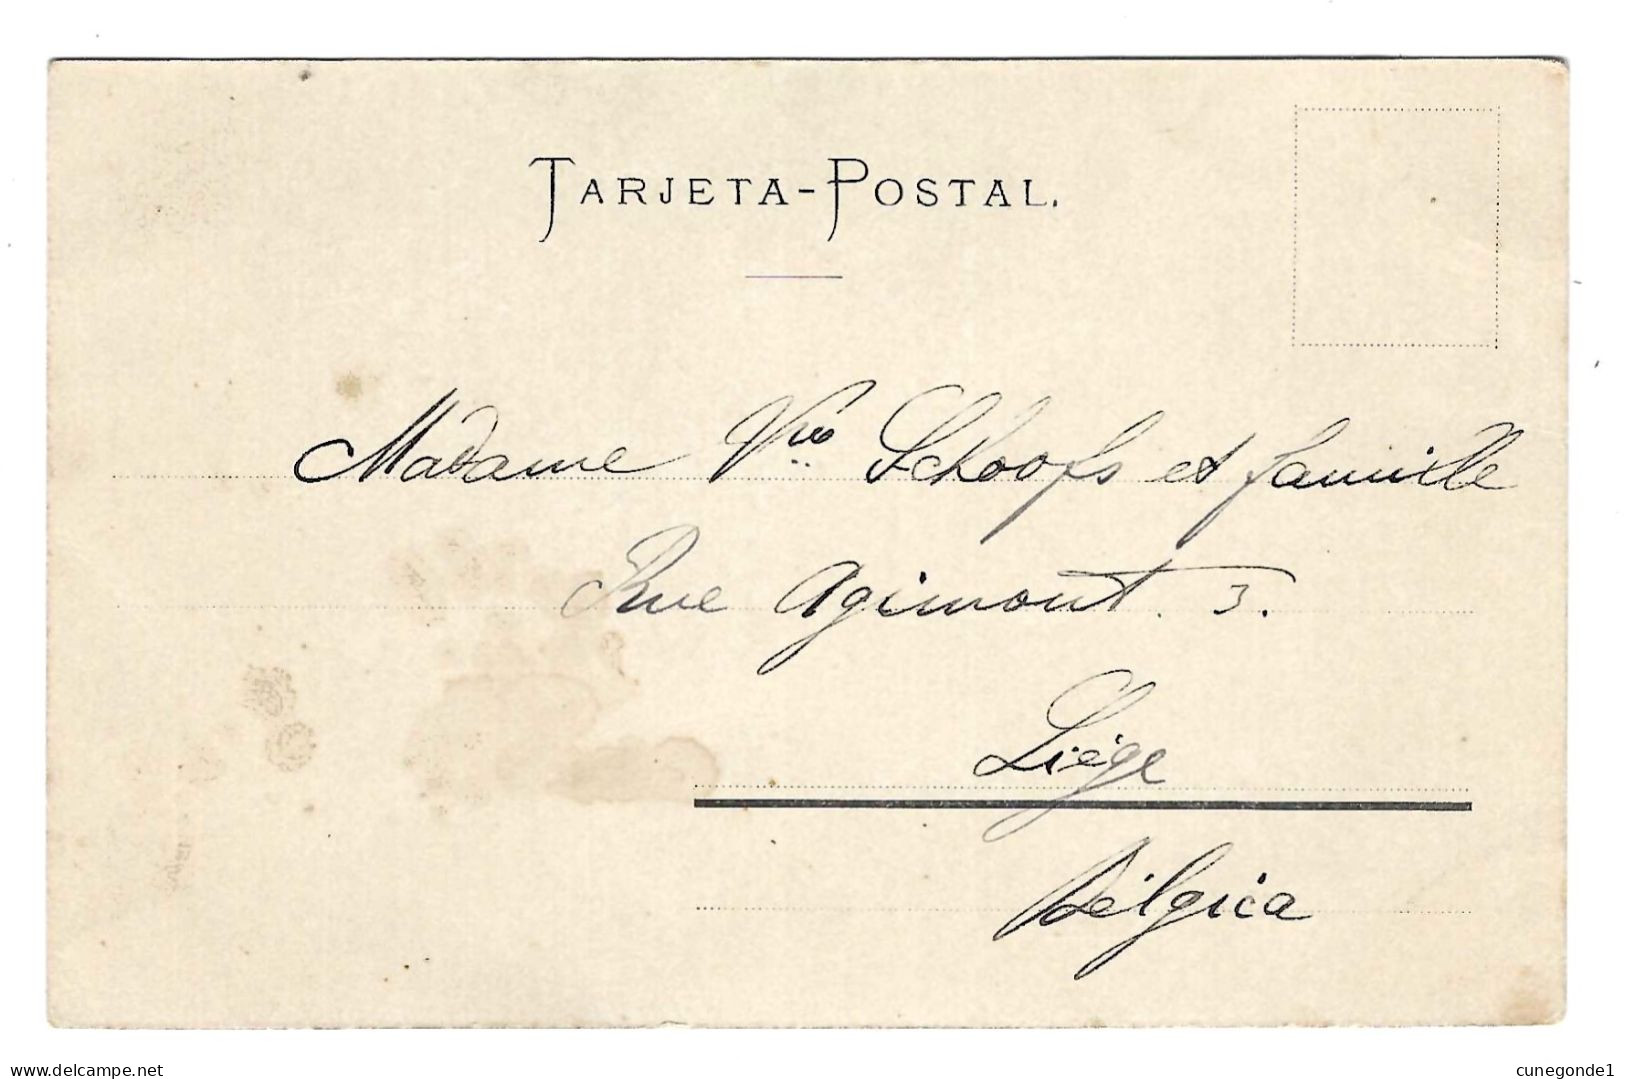 TARJETA-POSTAL.
Madame Vve Schoofs et famille
Rue Agimont. 3.
Liège
Bélgica
www.delcampe.net
cunegonde1